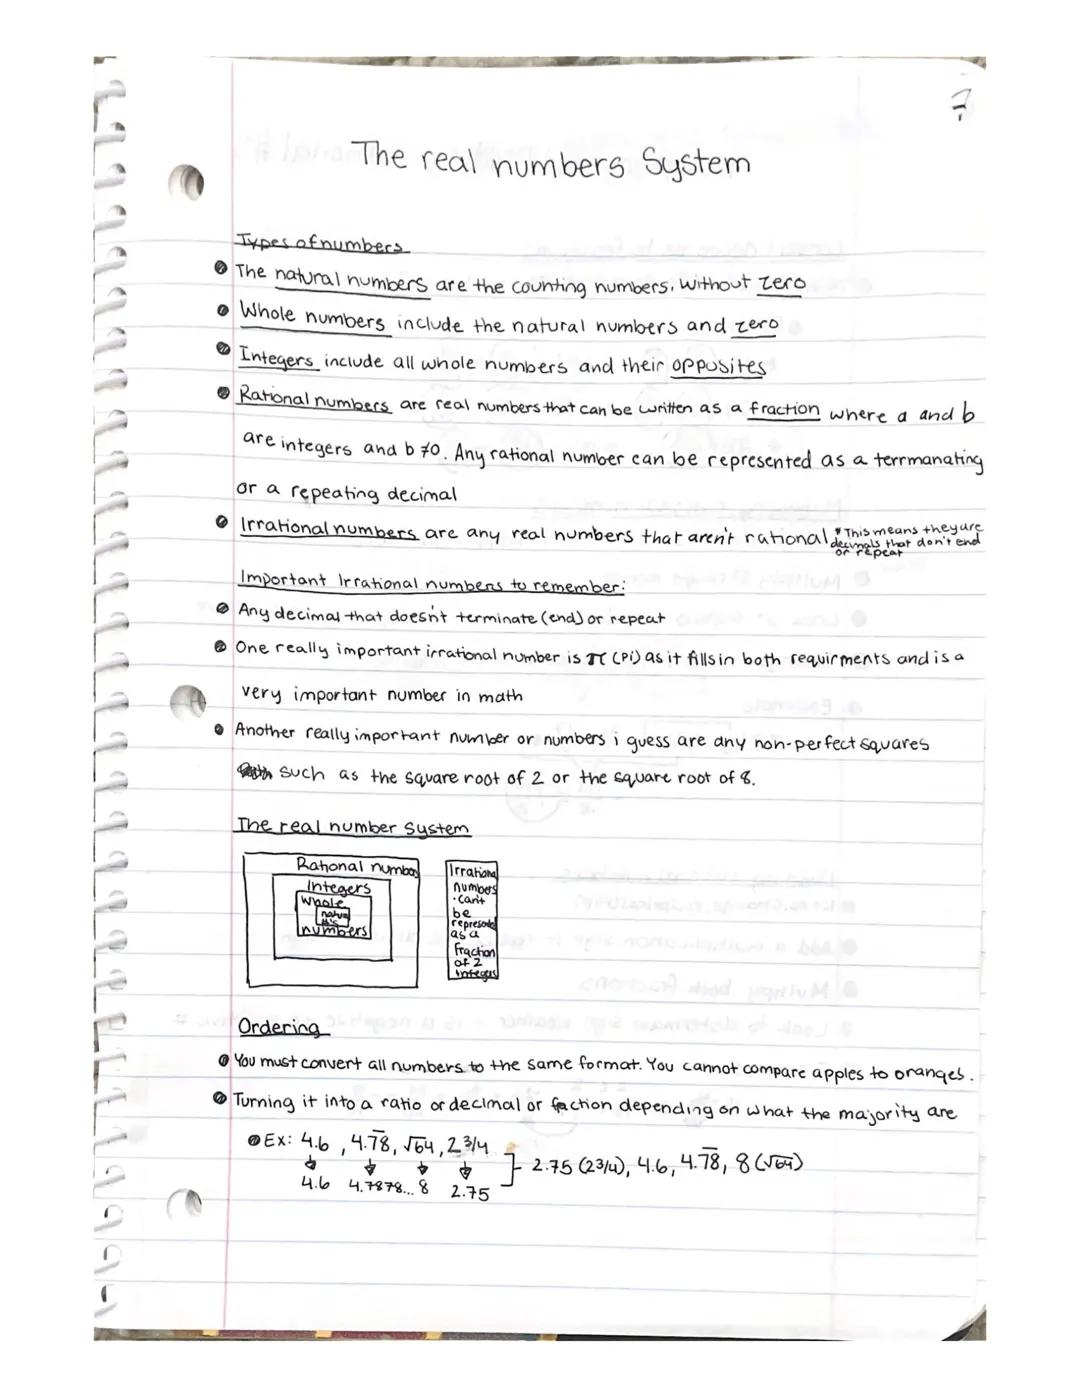 7
The real numbers System
Types of numbers
The natural numbers are the counting numbers, without zero
Whole numbers include the natural numbers and zero
Integers include all whole numbers and their opposites
Rational numbers are real numbers that can be written as a fraction where a and b
are integers and b≠0. Any rational number can be represented as a terrmanating
or a repeating decimal
Irrational numbers are any real numbers that aren't rational *This means they are
decimals that don't end
or repeat
Important Irrational numbers to remember:
Any decimal that doesn't terminate (end) or repeat
One really important irrational number is π (Pi) as it fills in both requirments and is a
very important number in math
Another really important number or numbers i guess are any non-perfect squares
such as the square root of 2 or the square root of 8.
The real number system
Rational number
Integers
Whole
natural
#'s
numbers
Irrational
numbers
· can't
be
represented
as a
fraction
of 2
integers
Ordering
You must convert all numbers to the same format. You cannot compare apples to oranges.
Turning it into a ratio or decimal or faction depending on what the majority are
Ex: 4.6, 4.7̅8̅, √64, 2 3/4
4.6 4.7878... 8 2.75
2.75 (2 3/4), 4.6, 4.7̅8̅, 8 (√64)